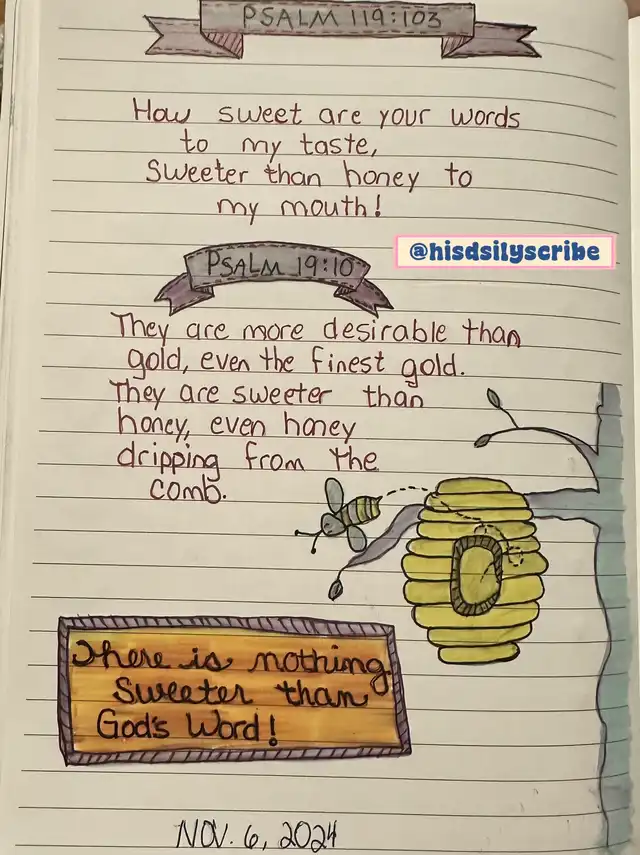 PSALM 119:103
How sweet are your words
to my taste,
Sweeter than honey to
my mouth!
@hisdsilyscribe
PSALM 19:10
They are more desirable than
gold, even the finest gold.
They are sweeter than
honey, even honey
dripping from the
comb.
There is nothing
Sweeter than
God's Word!
NOV. 6, 2024